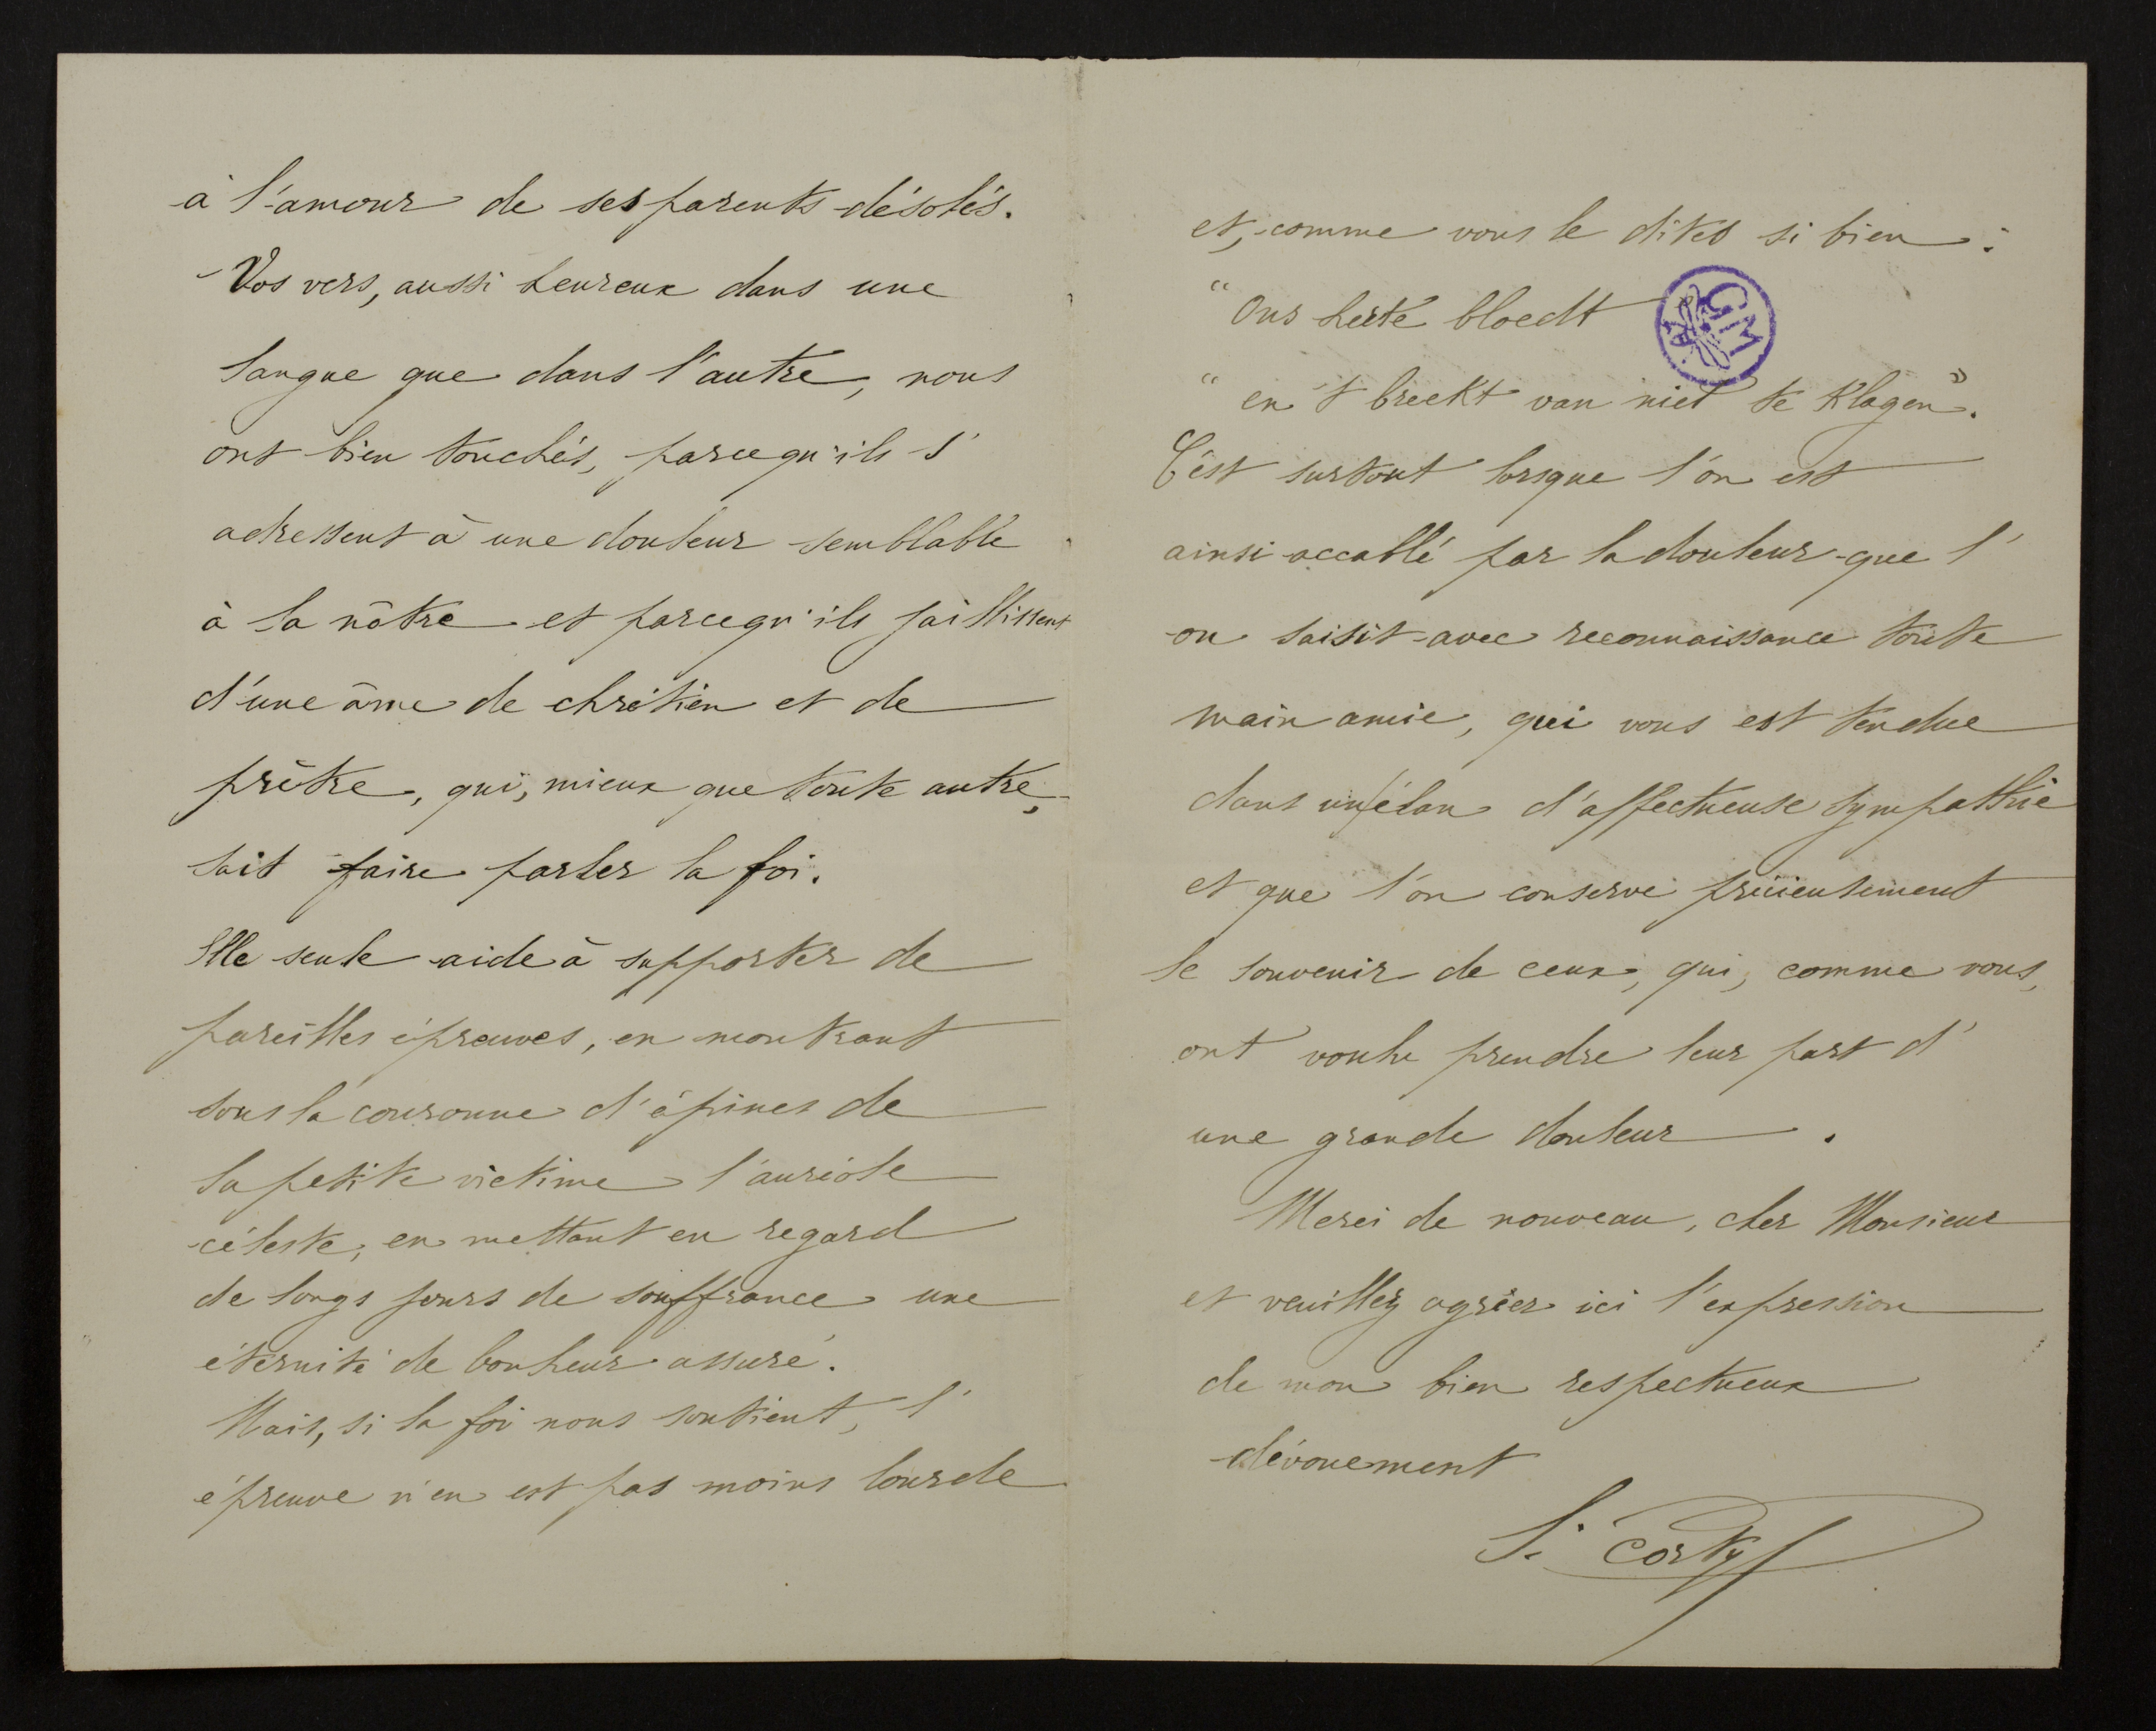 à l'amour de ses parents désolés.
Vos vers, aussi heureux dans une
langue que dans l'autre, nous
ont bien touchés, parcequ'ils s'
adressent à une douleur semblable
à la nôtre et parcequ'ils jaillissent
d'une âme de chrétien et de
prêtre, qui, mieux que toute autre,
sait faire parler la foi.
Elle seule aide à supporter de
pareilles épreuves, en montrant
sous la couronne d'épines de
la petite victime l'auréole
céleste, en mettant en regard
de longs jours de souffrance une
éternité de bonheur assuré.
Mais, si la foi nous soutient, l'
épreuve n'en est pas moins lourde
et, comme vous le dites si bien :
"Ons herte bloedt
GM
"en 't breekt van niet te klagen".
C'est surtout lorsque l'on est
ainsi accablé par la douleur que l'
on saisit avec reconnaissance toute
main amie, qui vous est tendue
dans un élan d'affectueuse sympathie
et que l'on conserve précieusement
le souvenir de ceux, qui, comme vous,
ont voulu prendre leur part d'
une grande douleur.
Merci de nouveau, cher Monsieur
et veuillez agréer ici l'expression
de mon bien respectueux
dévouement